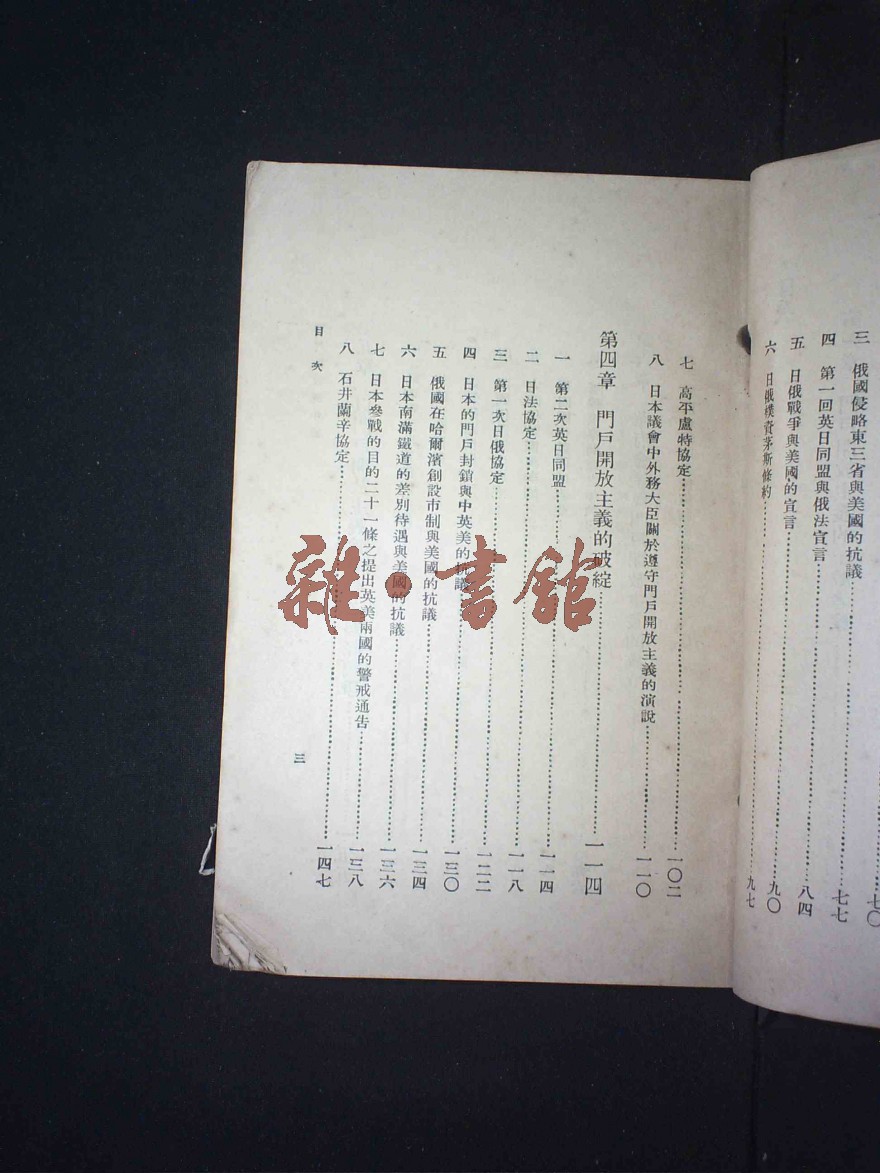 三 俄國侵略東三省與美國的抗議……七〇
四 第一回英日同盟與俄法宣言……七七
五 日俄戰爭與美國的宣言……八四
六 日俄樸資茅斯條約……九〇
九七
七 高平盧特協定……一〇二
八 日本議會中外務大臣關於遵守門戶開放主義的演說……一一〇
第四章 門戶開放主義的破綻……一一四
一 第二次英日同盟……一一四
二 日法協定……一一八
三 第一次日俄協定……一二二
四 日本的門戶封鎖與中英美的抗議……一三〇
五 俄國在哈爾濱創設市制與美國的抗議……一三四
六 日本南滿鐵道的差別待遇與美國的抗議……一三六
七 日本參戰的目的二十一條之提出英美兩國的警戒通告……一三八
八 石井蘭辛協定……一四七
目次
三
雜·書館